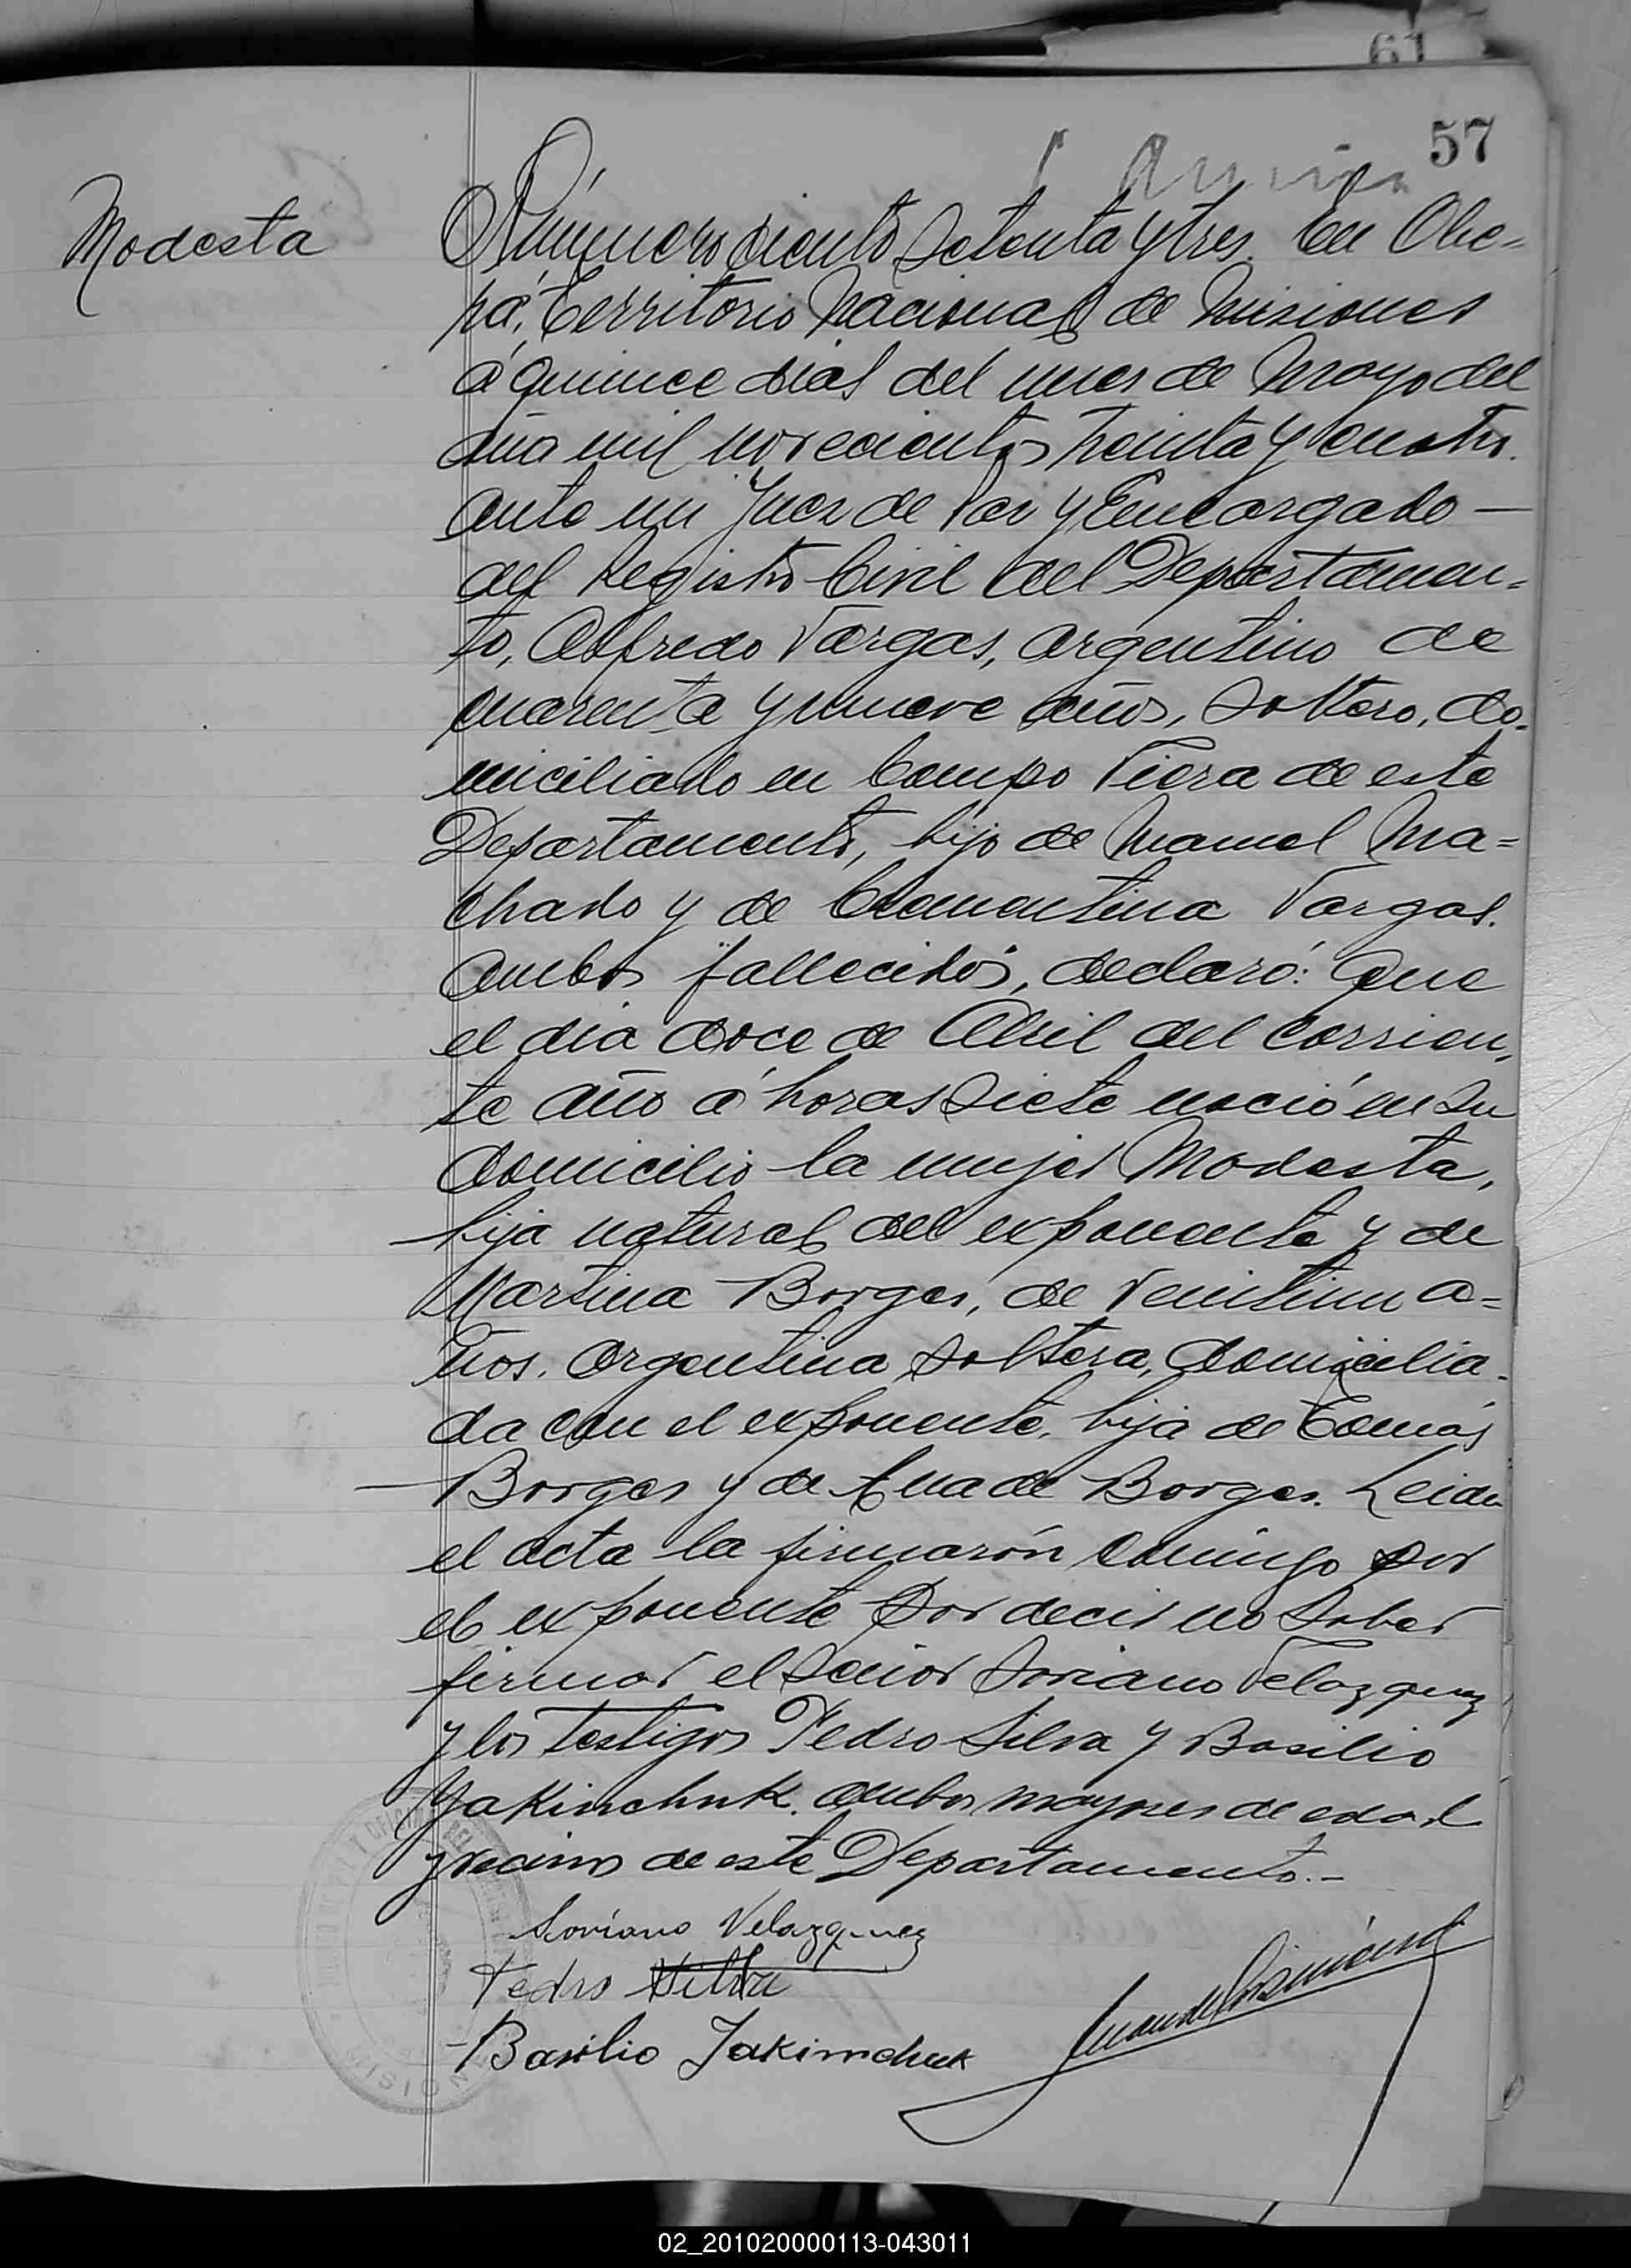 61
57
Modesta
Número ciento setenta y tres. En Obe=
rá, Territorio Nacional de Misiones
á quince dias del mes de Mayo del
año mil novecientos treinta y cuatro.
ante mi Juez de Paz y Encargado —
del Registro Civil del Departamen=
to, Alfredo Vargas, argentino de
cuarenta y nueve años, soltero, do-
miciliado en Campo Viera de este
Departamento, hijo de Manuel Ma=
chado y de Clementina Vargas.
ambos fallecidos, declaró: Que
el dia doce de Abril del corrien-
te año á horas siete nació en su
domicilio la mujer Modesta,
hija natural del exponente y de
Martina Borges, de veintiun a=
ños. Argentina soltera, domicilia-
da con el exponente, hija de Tomás
Borges y de Ana de Borges. Leida
el acta la firmarón conmigo por
el exponente por decir no saber
firmar el señor Soriano Velazquez
y los testigos Pedro Silva y Basilio
Yakimchuk. ambos mayores de edad
y vecinos de este Departamento.-
Soriano Velazquez
Pedro Silva
Basilio Jakimchuk
MISIONES
02_201020000113-043011